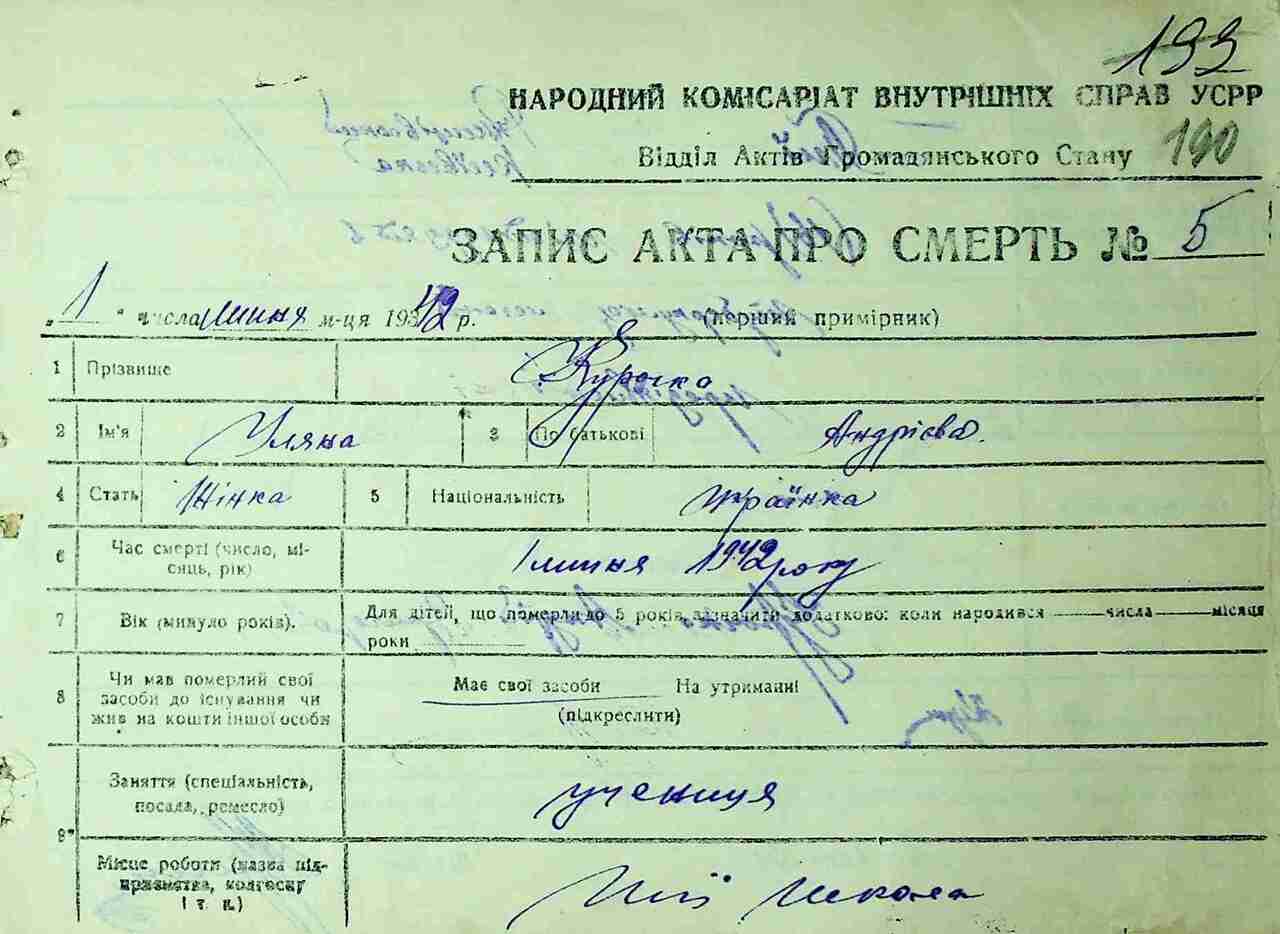 193
НАРОДНИЙ КОМІСАРІАТ ВНУТРІШНІХ СПРАВ УСРР
Відділ Актів Громадянського Стану 190
ЗАПИС АКТА ПРО СМЕРТЬ № 5
„1“ числа липня м-ця 1942 р. (перший примірник)
1 Прізвище Курочка
2 Ім'я Уляна 3 По батькові Андрієва.
4 Стать Жінка 5 Національність Українка
6 Час смерті (число, мі-
сяць, рік) 1 липня 1942 року
7 Вік (минуло років). Для дітей, що померли до 5 років, зазначити додатково: коли народився числа місяця
роки
8 Чи мав померлий свої
засоби до існування чи
жив на кошти іншої особи
Має свої засоби На утриманні
(підкреслити)
9 Заняття (спеціальність,
посада, ремесло) учениця
Місце роботи (назва під-
приємства, колгоспу
і т. і.) школа